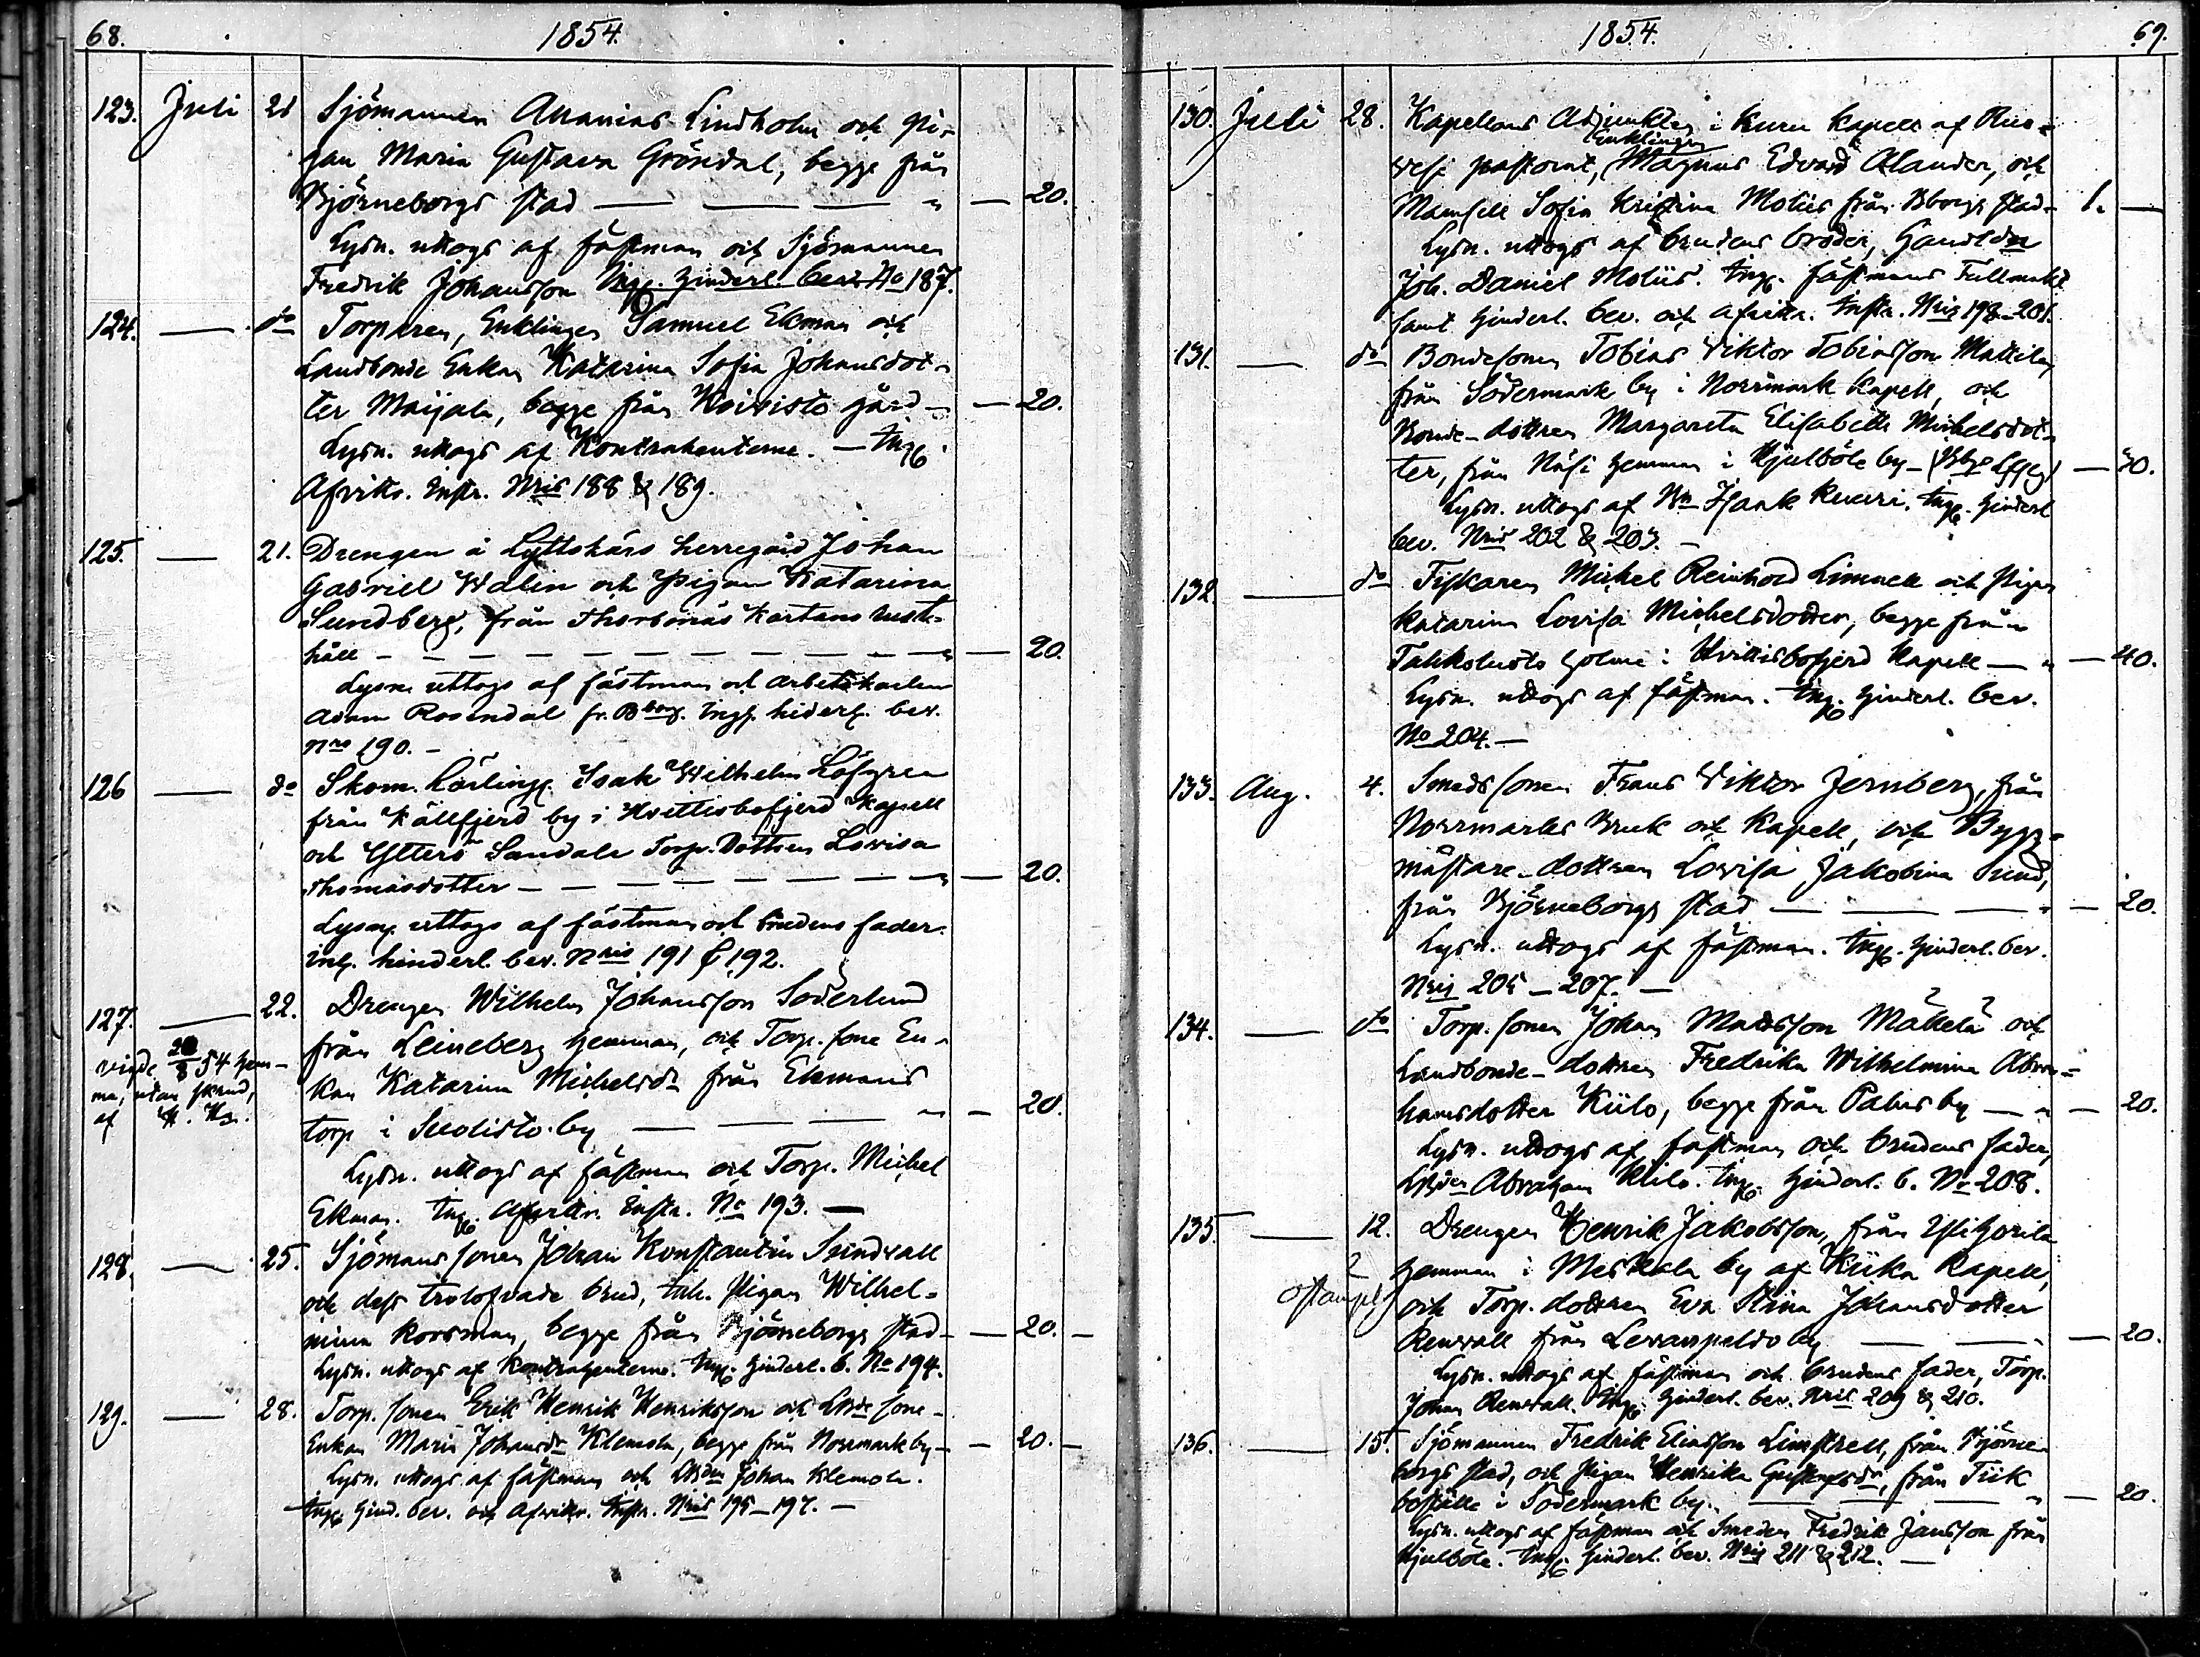 68.
1854.
123. Juli 21 Sjömannen Ananias Lindholm och Pi-
gan Maria Gustava Gröndal, begge från
Björneborgs stad — — — " — 20.
Lysn. uttogs af fästman och Sjömannen
Fredrik Johansson Ingg. hinderl. bev. No 187.
124. — do Torparen, Enklingen Samuel Ekman och
Landbonde Enkan Katarina Sofia Johansdot-
ter Maijala, begge från Koivisto gård — — 20.
Lysn. uttogs af Kontrahenterne. — Ingg.
Afvittr. Instr. Nris 188 & 189.
125. — 21. Drengen å Lyttskärs herregård Johan
Gabriel Walin och Pigan Katarina
Sundberg, från Thorbonäs Kartano rust-
håll — — — — — — — — — " — 20.
Lysn. uttogs af fästman och arbetskarlen
Adam Rosendal fr. Bborg. Ingg. hiderl. bev.
nro 190. —
126 — do Skom. Lärling. Isak Wilhelm Löfgren
från Källfjerd by i Hvittisbofjerd Kapell
och Ytterö Sandala Torp. Dottren Lovisa
Thomasdotter — — — — — — " — 20.
Lysn. uttogs af fästman och brudens fader.
ing. hinderl. bev. Nris 191 & 192.
127. — 22. Drengen Wilhelm Johansson Söderlund
från Leineberg hemman, och Torp. sone En-
kan Katarina Michelsdr från Ekmans
torp i Suolisto by — — — " — 20.
vigde 20/8 54 hem-
ma, utan skrud,
af
Lysn. uttogs af fästman och Torp. Michel
Ekman. Ingg. Afvittr. Instr. No 193. —
128. — 25. Sjömans sonen Johan Konstantin Sundvall
och dess trolofvade brud, Inh. Pigan Wilhel-
mina Korsman, begge från Björneborgs stad — — 20. —
Lysn. uttogs af Kontrahenterne. Ingg. hinderl. b. No 194.
129. — 28. Torp. sonen Erik Henrik Henriksson och Lbde sone-
Enkan Maria Johansdr Klemola, begge från Norrmark by — — 20. —
Lysn. uttogs af fästman och Lbden Johan Klemola.
Ingg. hind. bev. och Afvittr. Instr. Nris 195–197. —
1854.
69.
130. Juli 28. Kapellans Adjunkten i Kuru Kapell af Ruo-
Enklingen
vesi pastorat, Magnus Edvard Alander, och
Mamsell Sofia Kristina Moliis från Bborgs stad — 1. —
Lysn. uttogs af brudens broder, Handlden
Joh. Daniel Moliis. Ingg. fästmans Fullmakt
samt hinderl. bev. och afvittr. Instr. Nris 198–201.
131. — do Bondesonen Tobias Viktor Tobiasson Mattila,
från Södermark by i Norrmark Kapell, och
Bonde-dottren Margareta Elisabeth Michelsdot-
ter, från Näsi hemman i Kjulböle by — — 30.
Lysn. uttogs af Bn Isaak Kuuri. Ingg. hinderl
bev. Nris 202 & 203. —
132 — do Fiskaren Michel Reinhold Limnell och Pigan
Katarina Lovisa Michelsdotter, begge från
Tahkoluoto holme i Hvittisbofjerd Kapell — " — 40.
Lysn. uttogs af fästman. Ingg. hinderl. bev.
No 204. —
133. Aug. 4. Smeds sonen Frans Viktor Jernberg, från
Norrmarks Bruk och Kapell, och Bygg-
mästare-dottren Lovisa Jakobina Sund,
från Björneborgs stad — — — " — 20.
Lysn. uttogs af fästman. Ingg. hinderl. bev.
Nris 205–207. —
134. — do Torp. sonen Johan Mattsson Mäkelä och
Landbonde-dottren Fredrika Wilhelmina Abra-
hamsdotter Kiilo, begge från Pahus by — " — 20.
Lysn. uttogs af fästman och brudens fader,
Lbden Abraham Kiilo. Ingg. hinderl. b. No 208.
135. — 12. Drengen Henrik Jakobsson, från
hemman i Meskala by af Kiika Kapell,
ostämpl.
och Torp. dottren Eva Stina Johansdotter
Renvall från Levanpelto by — — " — 20.
Lysn. uttogs af fästman och brudens fader, Torp.
Johan Renvall. Ingg. hinderl. bev. Nris 209 & 210.
136. — 15. Sjömannen Fredrik Eliasson Limstrell, från Björne-
borgs stad, och Pigan Henrika Gustafsdr, från Tiik
boställe i Södermark by. — — — " — 20.
Lysn. uttogs af fästman och Smeden Fredrik Jansson från
Kjulböle. Ingg. hinderl. bev. Nris 211 & 212. —